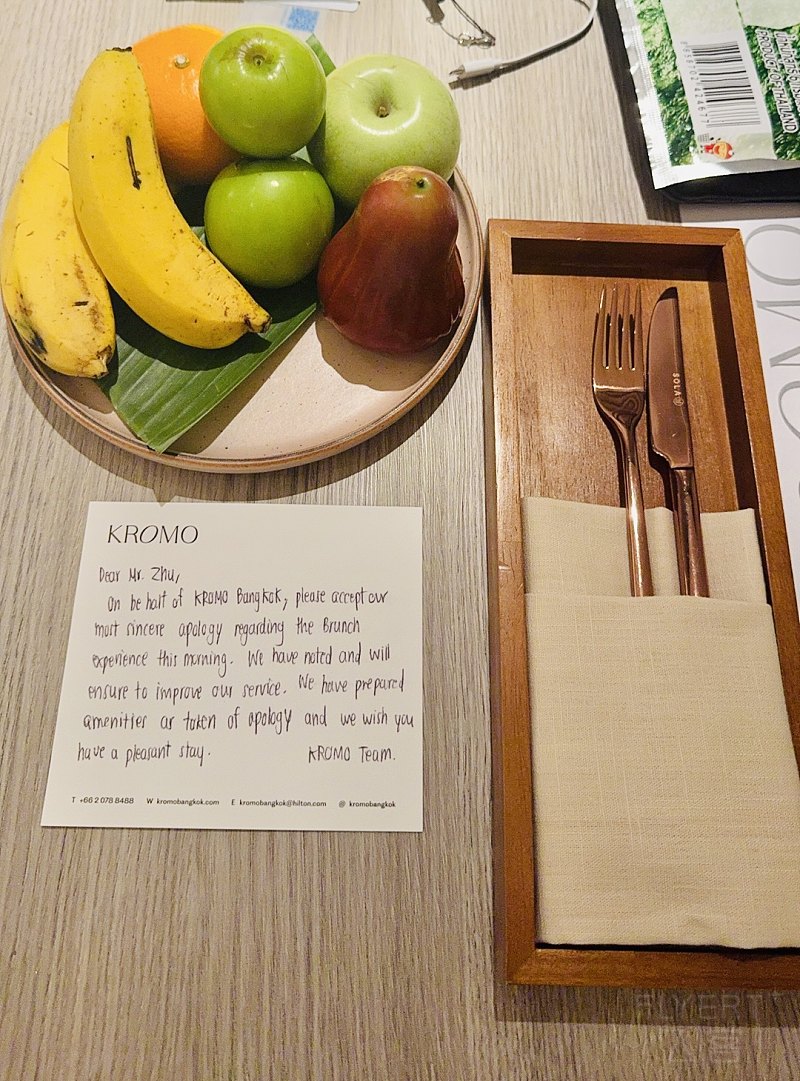 PRODUCT OF THAILAND
SOLA
KROMO
Dear Mr. Zhu,
On be half of KROMO Bangkok, please accept our
most sincere apology regarding the Brunch
experience this morning. We have noted and will
ensure to improve our service. We have prepared
amenities as token of apology and we wish you
have a pleasant stay. KROMO Team.
T +66 2 078 8488 W kromobangkok.com E kromobangkok@hilton.com @ kromobangkok
FLYERT